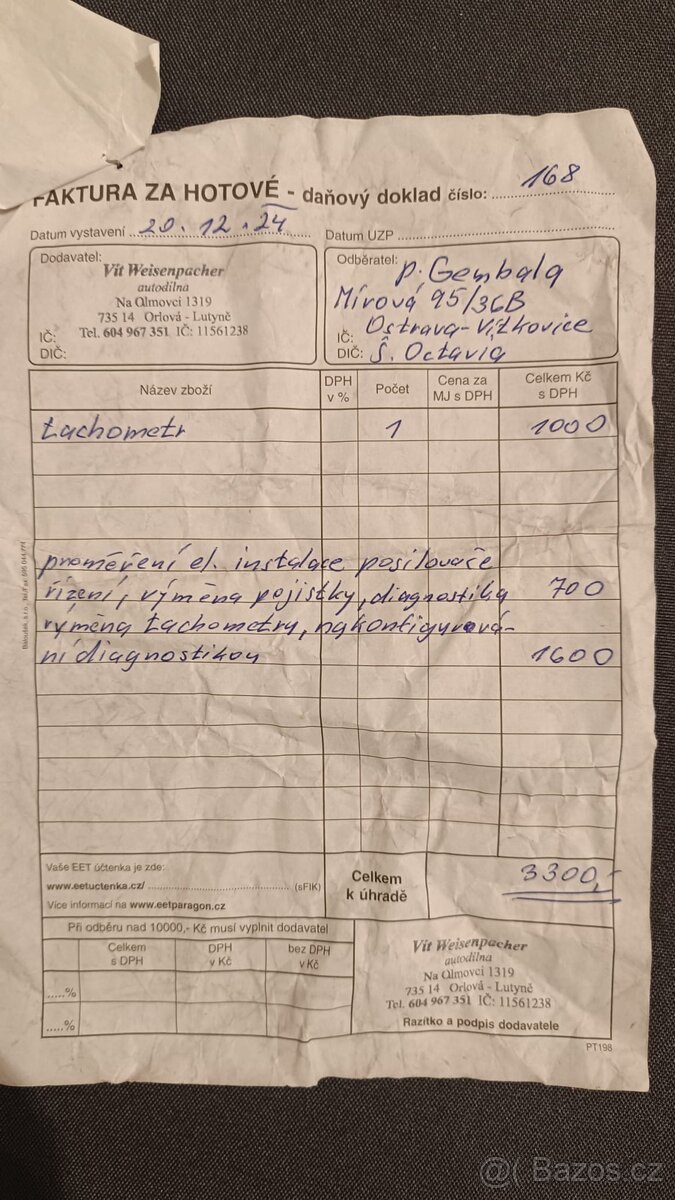 FAKTURA ZA HOTOVÉ - daňový doklad číslo: 168
Datum vystavení 20.12.24 Datum UZP
Dodavatel:
Vít Weisenpacher
autodílna
Na Olmovci 1319
735 14 Orlová - Lutyně
Tel. 604 967 351 IČ: 11561238
IČ:
DIČ:
Odběratel: p. Gembala
Mírová 95/36B
IČ: Ostrava-Vítkovice
DIČ: Š. Octavia
Název zboží DPH v % Počet Cena za MJ s DPH Celkem Kč s DPH
tachometr 1 1000
proměření el. instalace posilovače
řízení, výměna pojistky, diagnostika 700
výměna tachometru, nakonfigurová-
ní diagnostikou 1600
Vaše EET účtenka je zde:
www.eetuctenka.cz/ (sFIK)
Více informací na www.eetparagon.cz
Celkem k úhradě 3300,-
Při odběru nad 10000,- Kč musí vyplnit dodavatel
Celkem s DPH DPH v Kč bez DPH v Kč
.....%
.....%
Vít Weisenpacher
autodílna
Na Olmovci 1319
735 14 Orlová - Lutyně
Tel. 604 967 351 IČ: 11561238
Razítko a podpis dodavatele
PT198
Bazos.cz